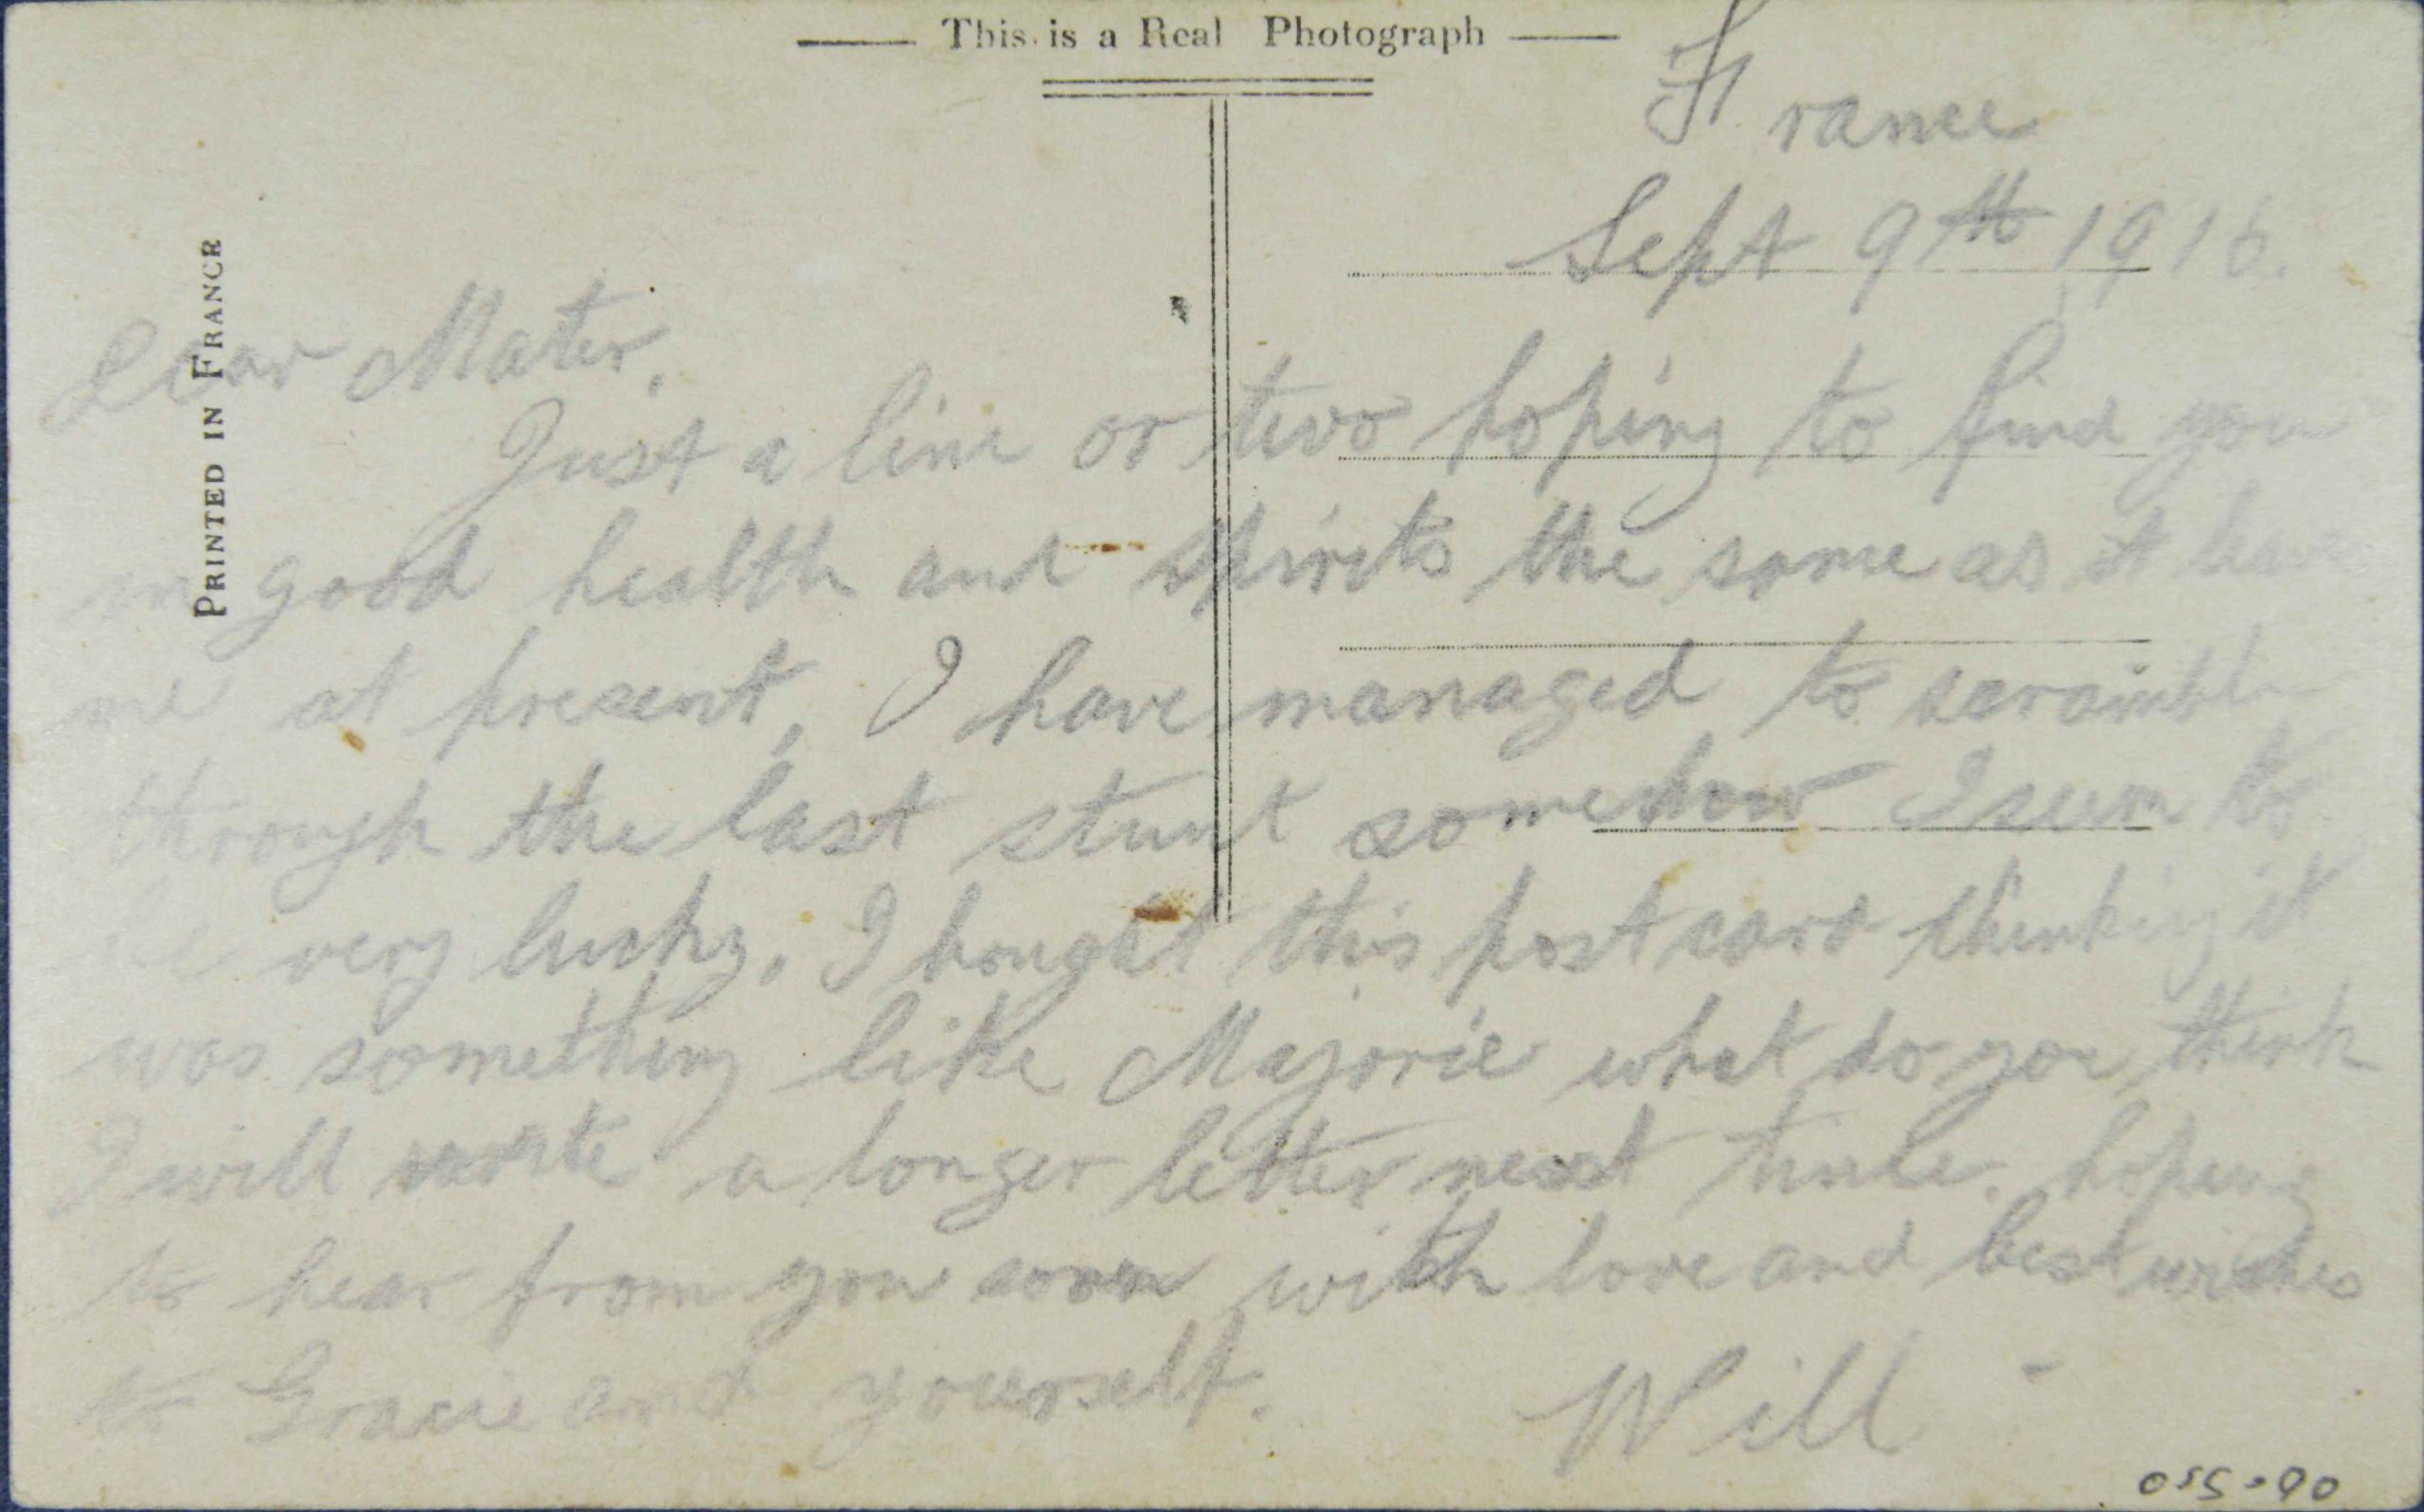 This is a Real Photograph
PRINTED IN FRANCE
France
Sept 9th 1916.
Dear Mater.
Just a line or two hoping to find you
in good health and spirits the same as it leave
me at present, I have managed to scramble
through the last stunt somehow I seem to
be very lucky. I bought this post card thinking it
was something like Majorie what do you think
I will write a longer letter next time. hoping
to hear from you soon with love and best wishes
to Gracie and yourself.
Will